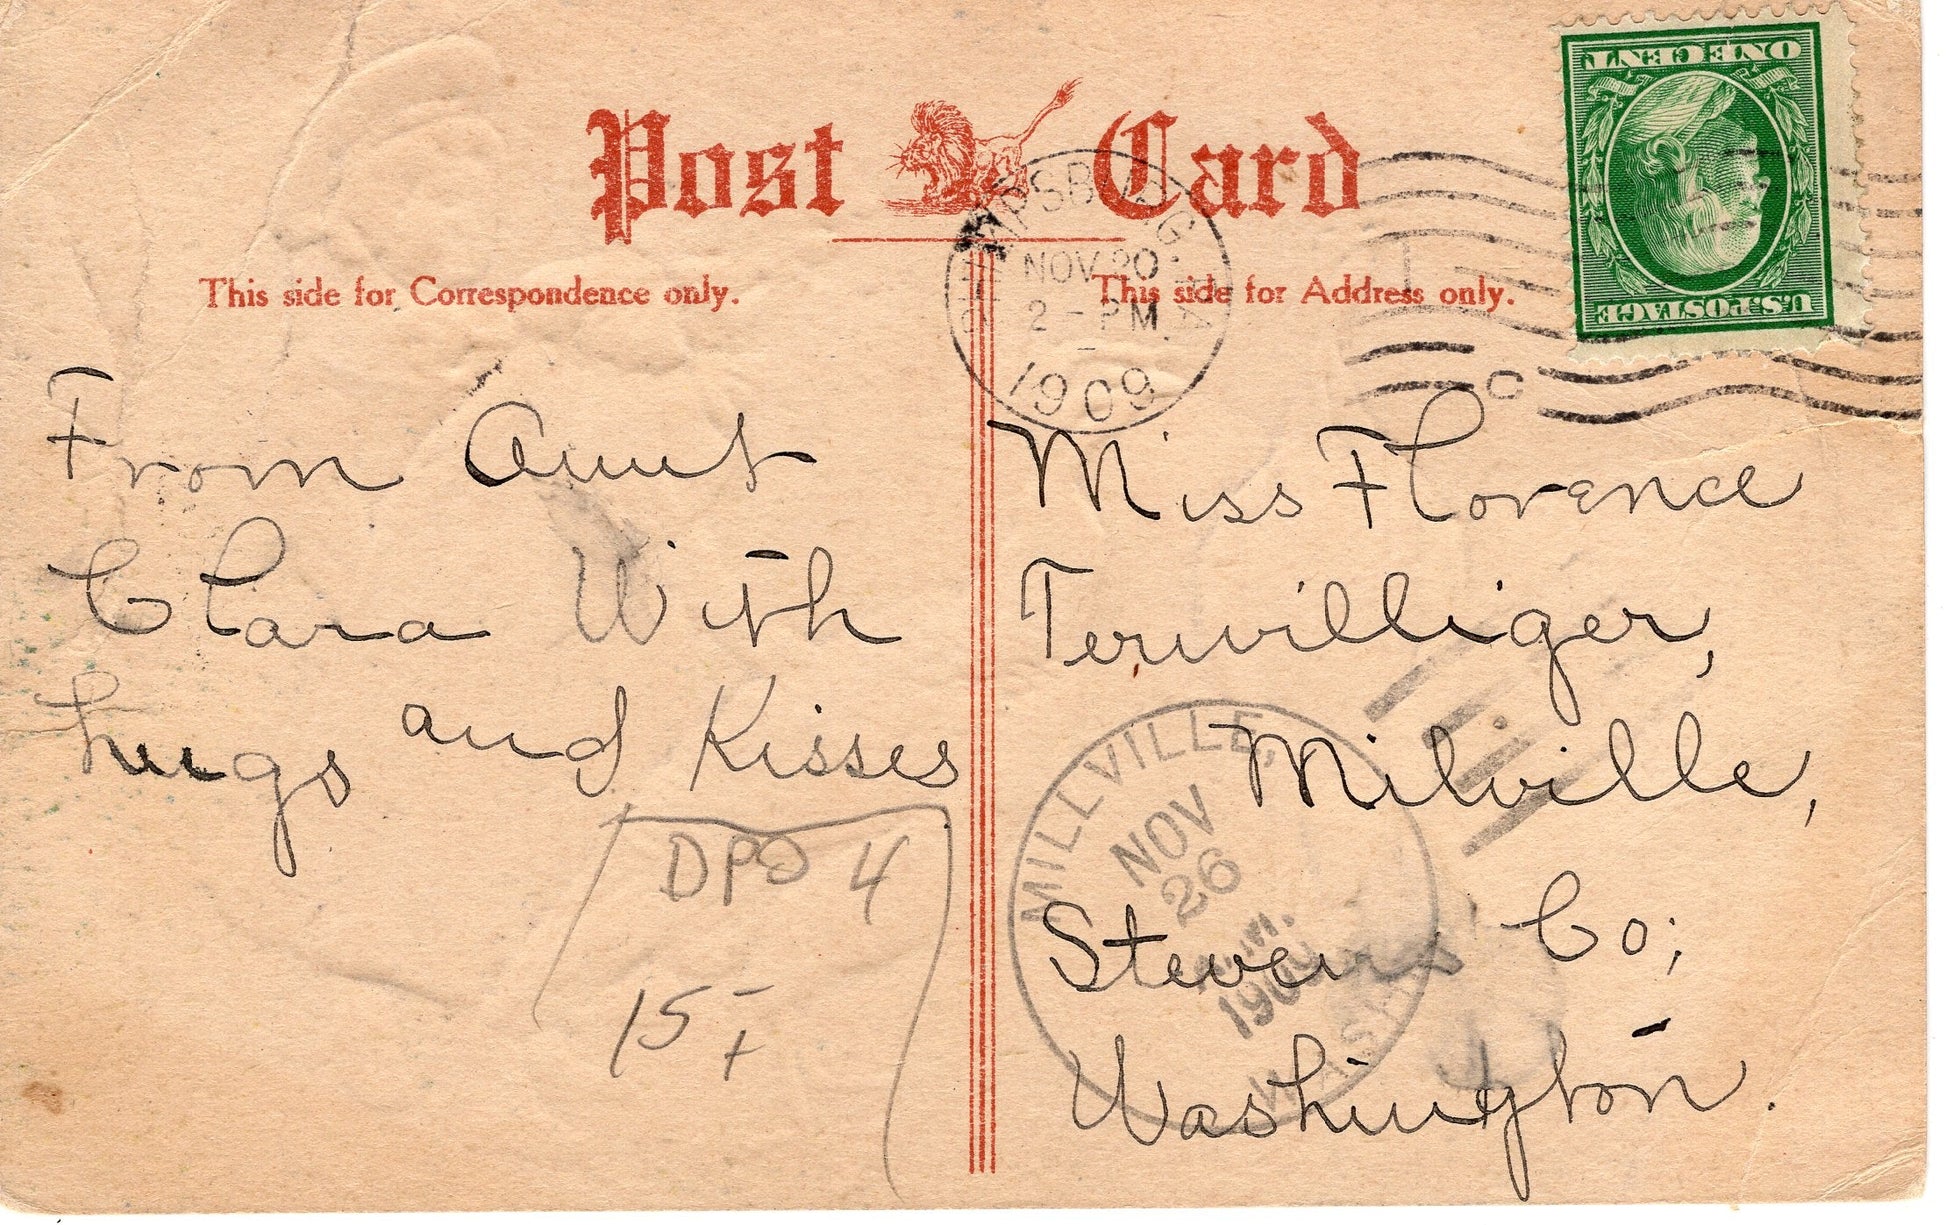 Post Card
This side for Correspondence only.
This side for Address only.
SHIPPENSBURG, PA
NOV 20
2 - PM
1909
C
ONE CENT
U.S. POSTAGE
From Aunt
Clara With
hugs and Kisses
DPO 4
15
Miss Florence
Terwilliger,
Milville,
Stevens Co;
Washington.
MILLVILLE,
NOV
26
WASH